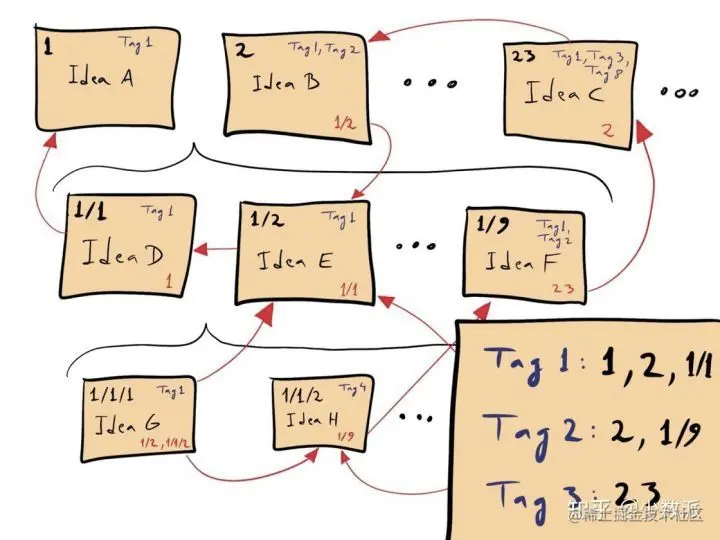 1 Tag 1
Idea A
2 Tag 1, Tag 2
Idea B
1/2
23 Tag 1, Tag 3,
Tag 8
Idea C
2
1/1 Tag 1
Idea D
1
1/2 Tag 1
Idea E
1/1
1/9 Tag 1,
Tag 2
Idea F
23
1/1/1 Tag 1
Idea G
1/2, 1/1/2
1/1/2 Tag 4
Idea H
1/9
Tag 1: 1, 2, 1/1
Tag 2: 2, 1/9
Tag 3: 23
知乎 @少数派
@稀土掘金技术社区